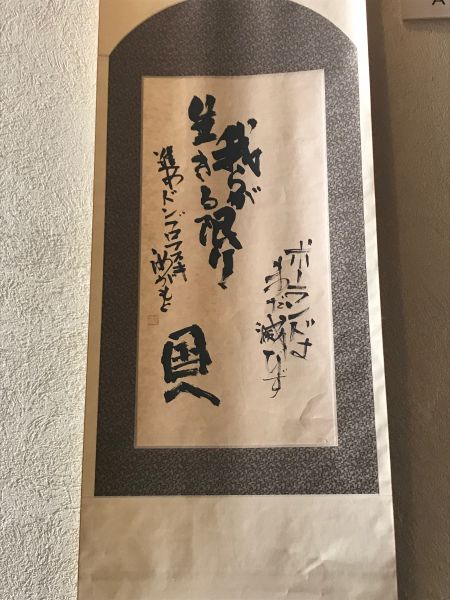 ポーランドは
まだ滅びず
我らが
生きる限り
進めドンブロフスキ
汝がもと
国へ
A